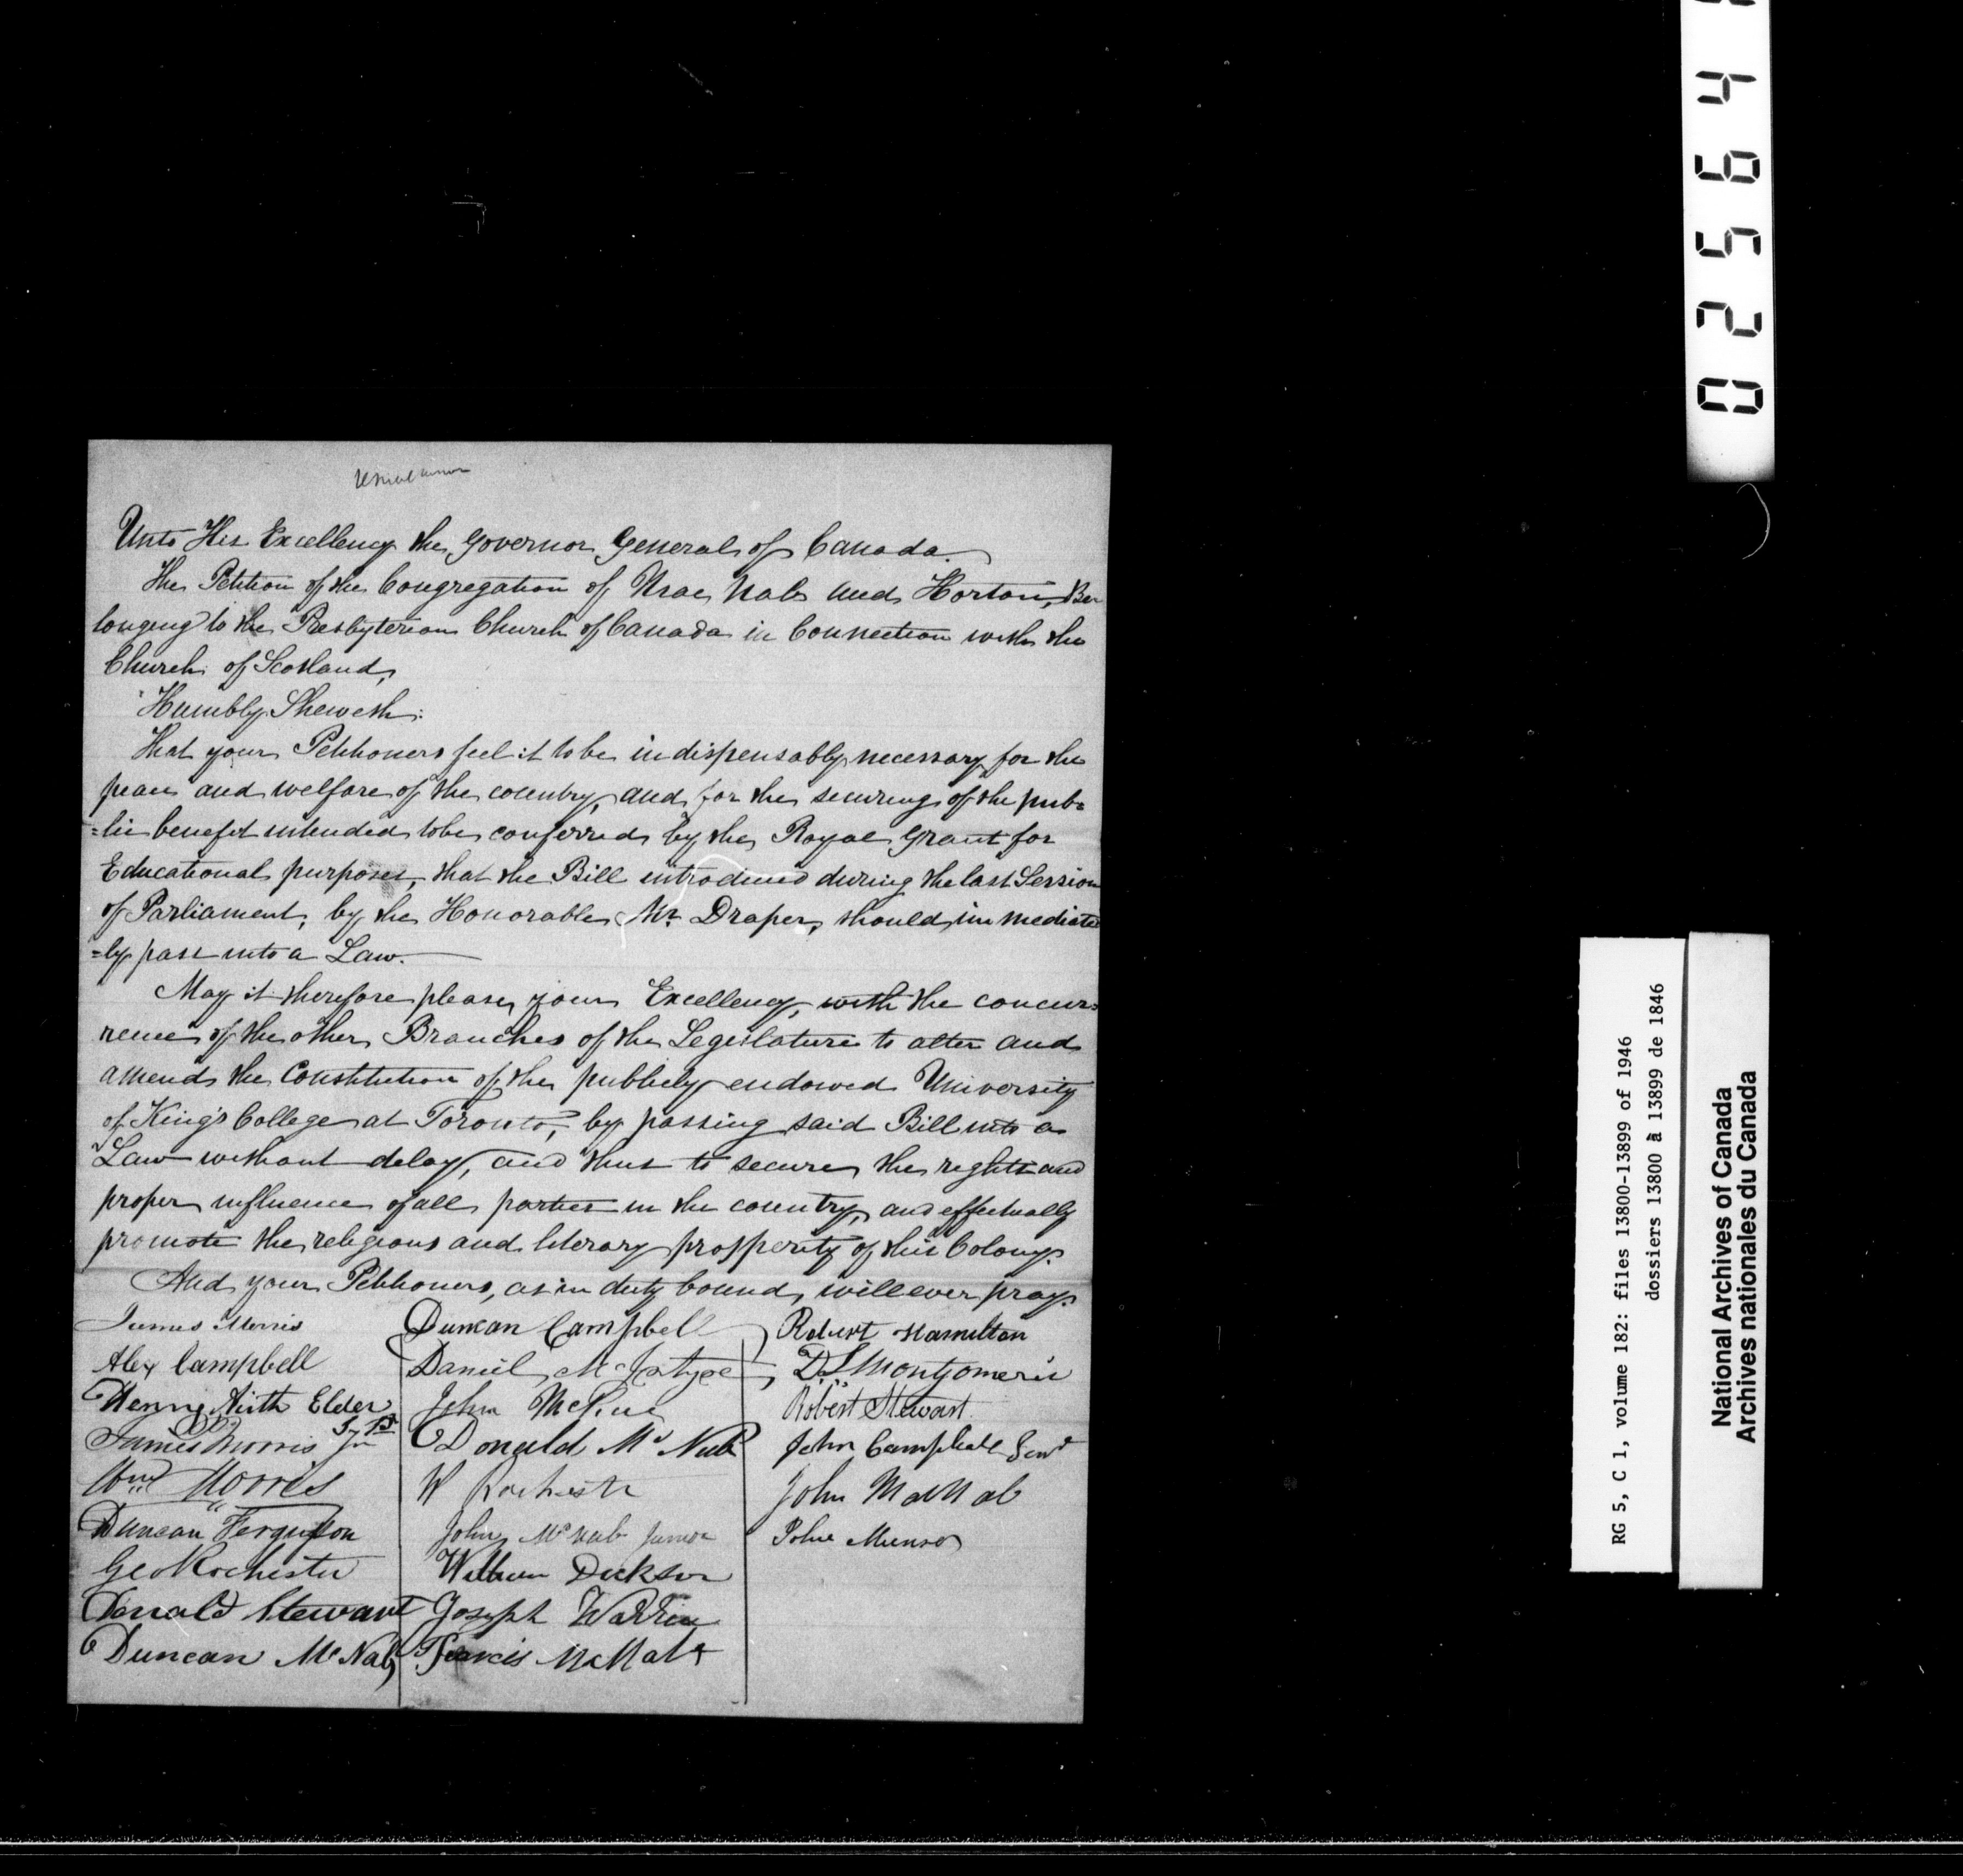 Unto His Excellency the Governor General of Canada.
The Petition of the Congregation of Mac Nab and Horton, Be
longing to the Presbyterian Church of Canada in Connection with the
Church of Scotland,
Humbly Sheweth:
That your Petitioners feel it to be indispensably necessary for the
peace and welfare of the country, and for the securing of the pub=
=lic benefit intended to be conferred by the Royal Grant for
Educational purposes, that the Bill introduced during the last Session
of Parliament, by the Honorable Mr. Draper, should immediate
=ly pass into a Law.
May it therefore please your Excellency, with the concur=
rence of the other Branches of the Legislature to alter and
amend the Constitution of the publicly endowed University
of King's College at Toronto, by passing said Bill into a
Law without delay, and thus to secure the rights and
proper influence of all parties in the country, and effectually
promote the religious and literary prosperity of this Colony.
And your Petitioners, as in duty bound, will ever pray.
James Morris
Alex Campbell
Henry Airth Elder
James Morris Jn
Wm Morris
Duncan Ferguson
Geo Rochester
Donald Stewart
Duncan McNab
Duncan Campbell
Daniel McIntyre
John
Donald McNab
W Rochester
John McNab Junior
William Dickson
Joseph
Francis McNab
Robert Hamilton
D. Montgomerie
Robert Stewart
John Campbell Senr
John MacNab
John Munro
02564
RG 5, C 1, volume 182: files 13800-13899 of 1946
dossiers 13800 à 13899 de 1846
National Archives of Canada
Archives nationales du Canada